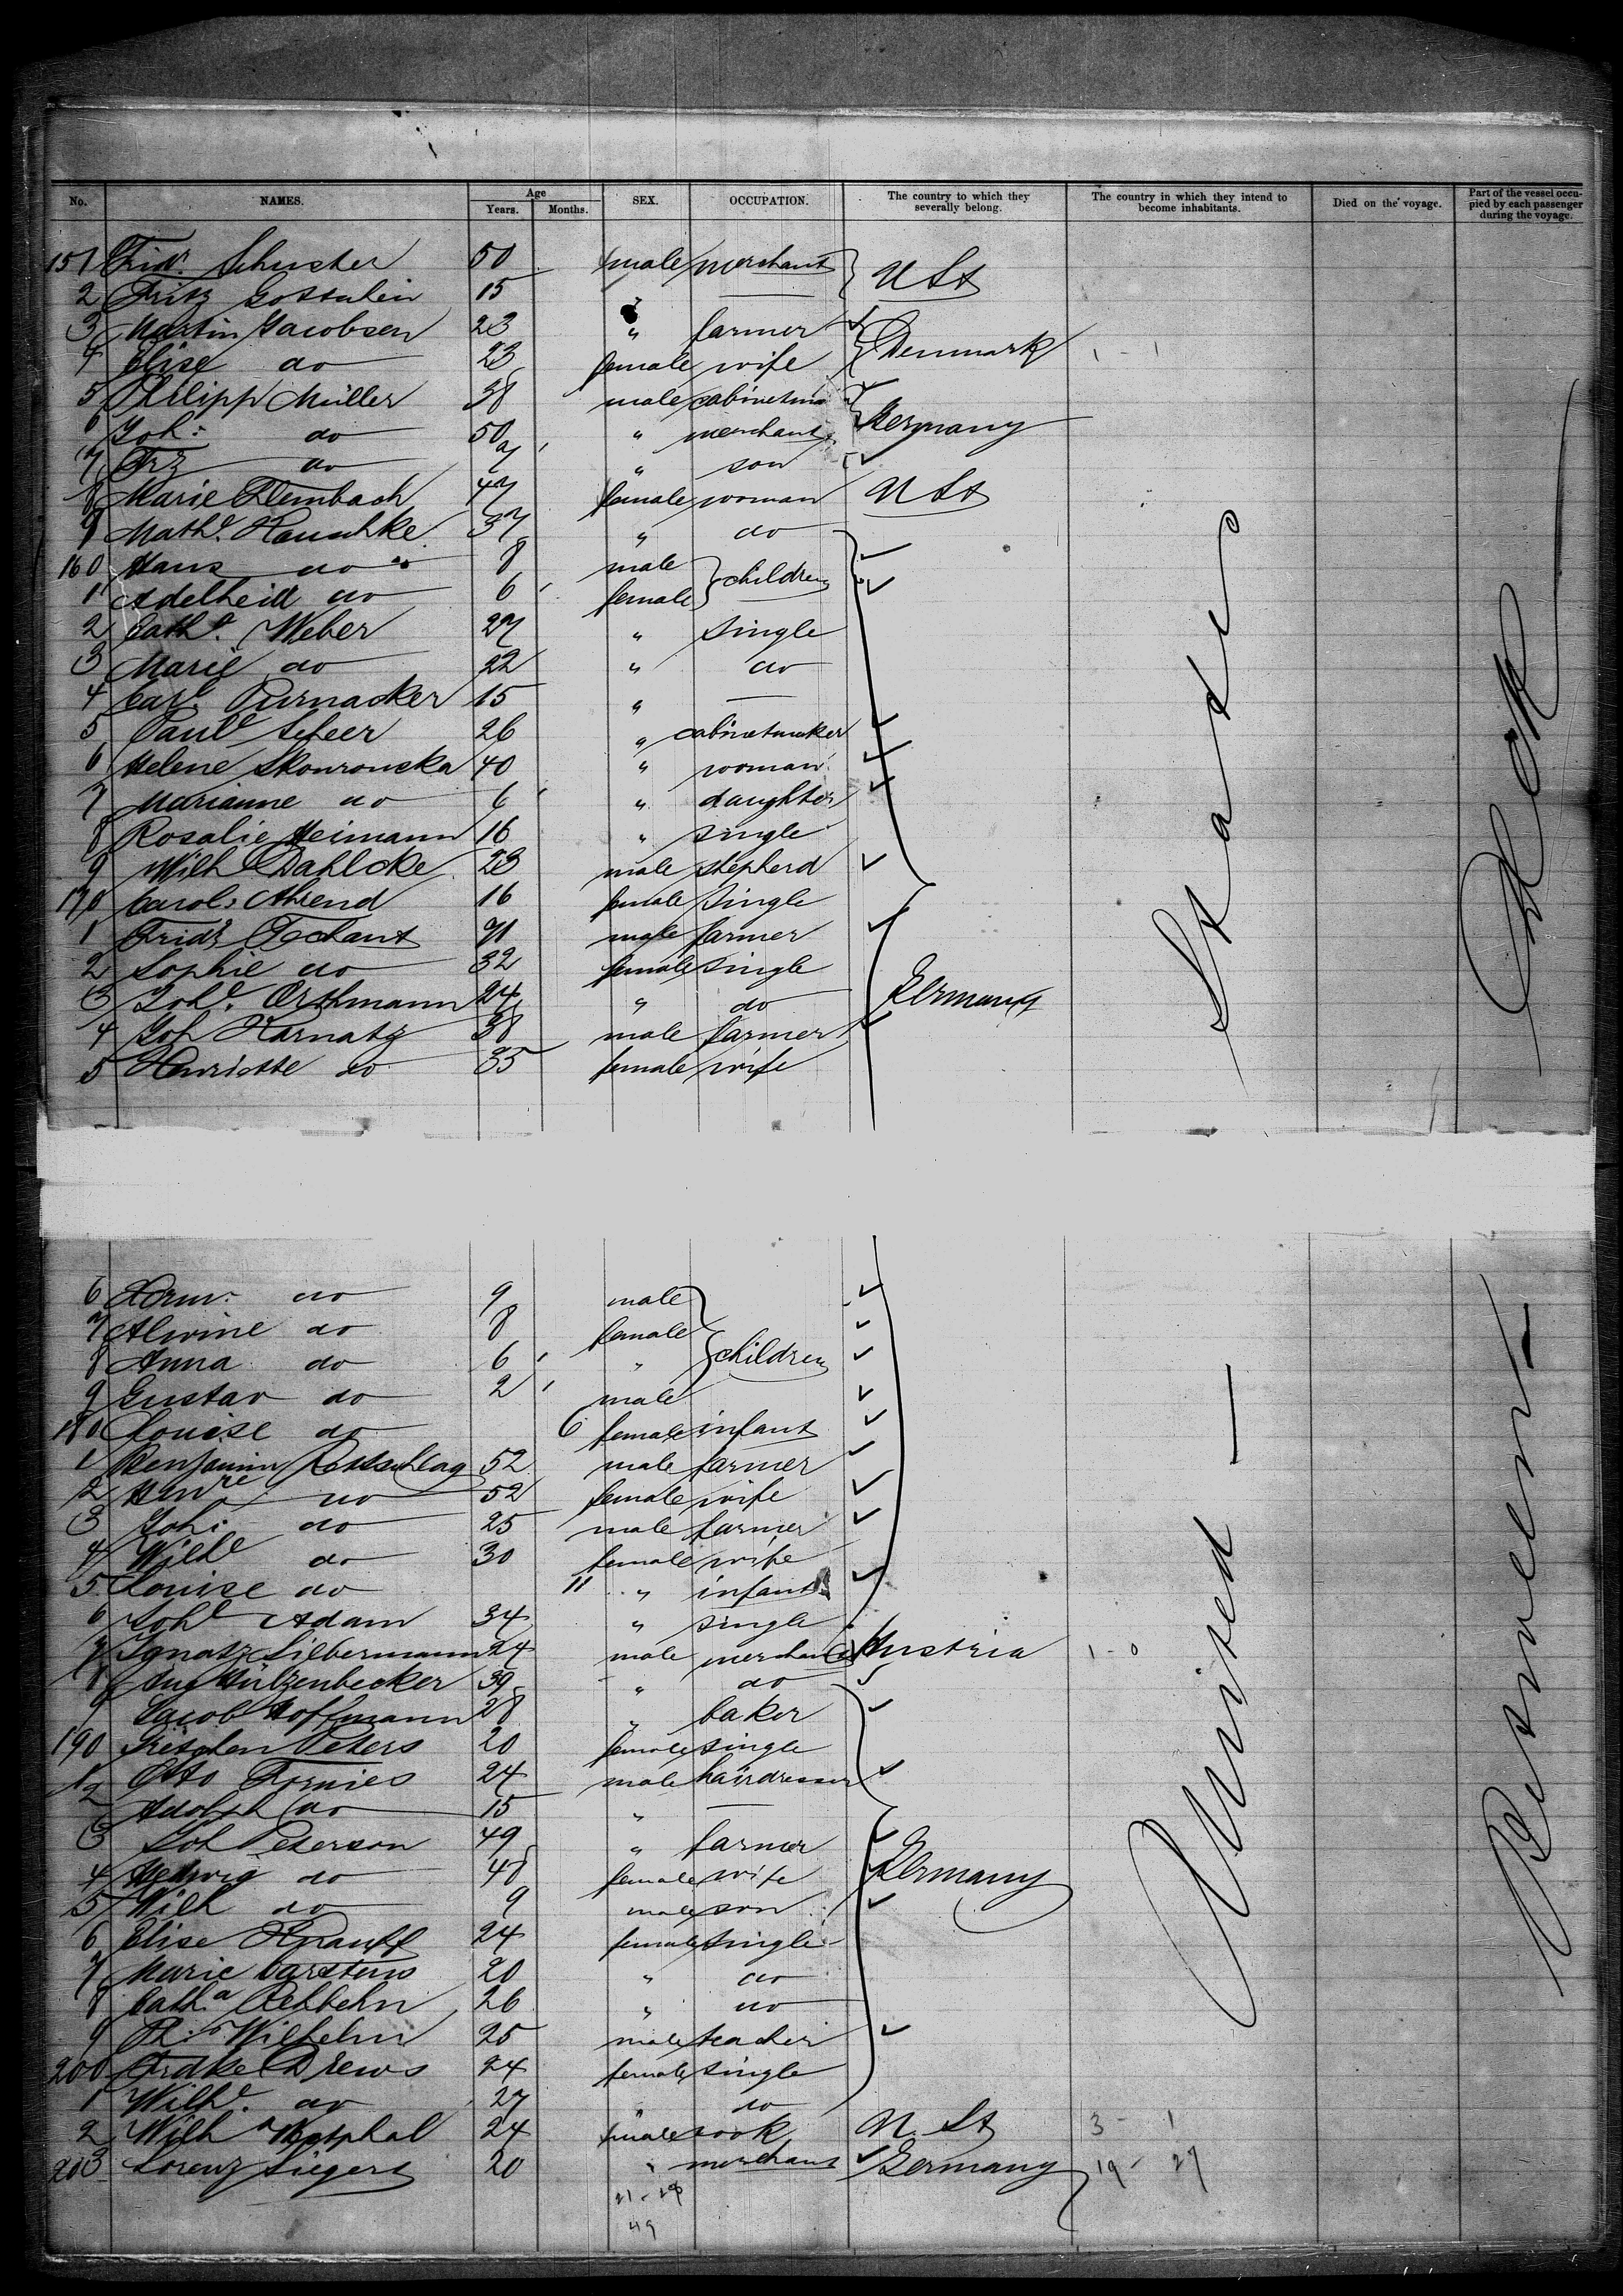 No. NAMES. Age Years. Months. SEX. OCCUPATION. The country to which they severally belong. The country in which they intend to become inhabitants. Died on the voyage. Part of the vessel occupied by each passenger during the voyage.
151 Frdr. Schuster 50 male merchant U St
2 Fritz 15 " —
3 Martin Jacobsen 23 " farmer Denmark 1 - 1
4 Elise do 23 female wife
5 Philipp Müller 38 male cabinetma
6 Joh: do 50 " merchant Germany
7 Frz do 7 " son
8 Marie Flembach 47 female woman U St
9 Mathe. Rauschke 37 " do
160 Hans do 8 male
1 Adelheid do 6 female children
2 Catha. Weber 27 " single
3 Marie do 22 " do
4 Carl. Purnacker 15 " —
5 Paule Scheer 26 " cabinetmaker
6 Helene Skouroneka 40 " woman
7 Marianne do 6 " daughter
8 Rosalie Heimann 16 " single
9 Wilh Dahlcke 23 male shepherd
170 Carol: Ahrend 16 female single
1 Fridr Techant 71 male farmer
2 Sophie do 32 female single
3 Johe. Orthmann 24 " do Germany
4 Joh Harnatz 38 male farmer
5 Henriette do 35 female wife
6 Herm: do 9 male
7 Alwine do 8 female
8 Anna do 6 " children
9 Gustav do 2 male
180 Louise do 6 female infant
1 Benjamin Rottschlag 52 male farmer
2 Henre do 52 female wife
3 Joh: do 25 male farmer
4 Wilhe do 30 female wife
5 Louise do 11 " infant
6 Johe Adam 34 " single
7 Ignatz Liebermann 24 male merchant Austria 1 - 0
8 Aug Hülzenbecker 39 " do
9 Jacob Hoffmann 28 " baker
190 Gretchen Peters 20 female single
1 Otto Tornies 24 male hairdresser
2 Adolph do 15 " —
3 Joh Peterson 49 " farmer
4 Hedwig do 48 female wife Germany
5 Wilh do 9 male son
6 Elise Knauff 24 female single
7 Marie Carstens 20 " do
8 Catha Rehbehn 26 " do
9 Th: Wilhelm 25 male teacher
200 Frdke Drews 24 female single
1 Wilhe. do 27 " do
2 Wilh Westphal 24 male cook U. St 3 - 1
203 Lorenz Siegert 20 " merchant Germany 19 - 27
21 - 28
49
United States
Between Deck